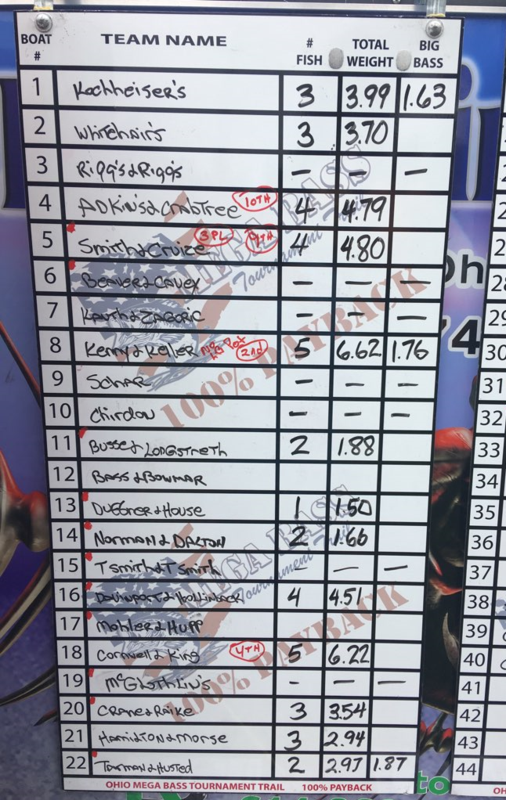 BOAT # TEAM NAME # FISH TOTAL WEIGHT BIG BASS
1 Kochheiser's 3 3.99 1.63
2 Whitehair's 3 3.70
3 Riggs & Riggs — — —
4 ADKINS & CRABTREE 10TH 4 4.79
5 Smith & Cruize 3PL 9TH 4 4.80
6 BEAVER & CAVEY — — —
7 — — —
8 KENNY & KELLER 2nd 5 6.62 1.76
9 SCHAR — — —
10 Chirdon — — —
11 BUSSE & LONGSTRETH 2 1.88
12 BASS & BOWMAR
13 & HOUSE 1 1.50
14 NORMAN & DALTON 2 1.66
15 T Smith & T Smith - — —
16 DAVENPORT & 4 4.51
17 Mohler & HUPP
18 Cornwell & King 4TH 5 6.22
19 McGlothlin's - — —
20 CRANE & Raike 3 3.54
21 HAMILTON & MORSE 3 2.94
22 TASMAN & HUSTED 2 2.97 1.87
MEGA BASS
Tournament Trail
100% PAYBACK
MEGA BASS
Tournament Trail
100% PAYBACK
OHIO MEGA BASS TOURNAMENT TRAIL 100% PAYBACK
28
29
30
31
32
33
34
35
36
37
38
39
40
41
42
43
44
OH
to